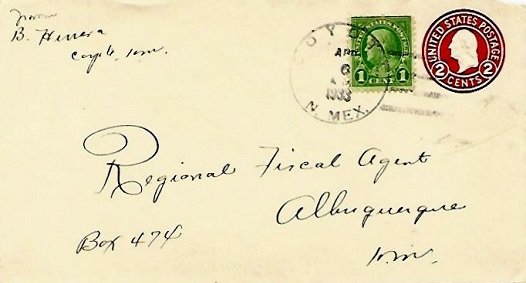 from
B. Herrera
Coyote, N.M.
COYOTE
APR
6
1933
N. MEX.
UNITED STATES POSTAGE
1 CENT 1
UNITED STATES POSTAGE
2 CENTS 2
Regional Fiscal Agent
Albuquerque
N.M.
Box 474